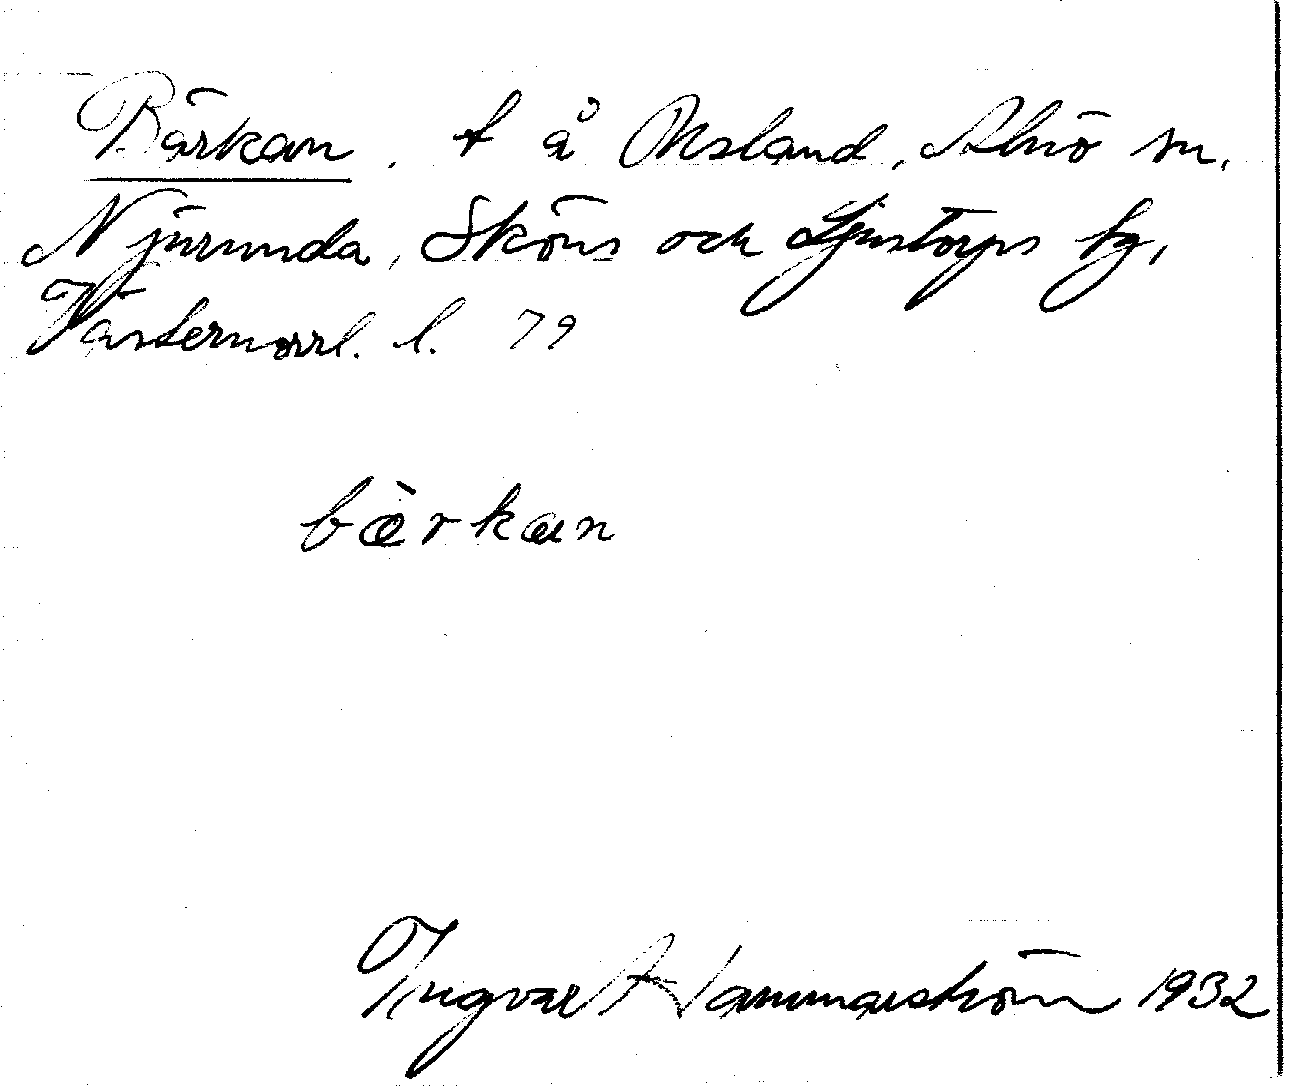 Bärkan, t å Usland, Alnö sn,
Njurunda, Sköns och Ljustorps tg,
Västernorrl. l. 79
bærkan
Ingvar Hammarström 1932